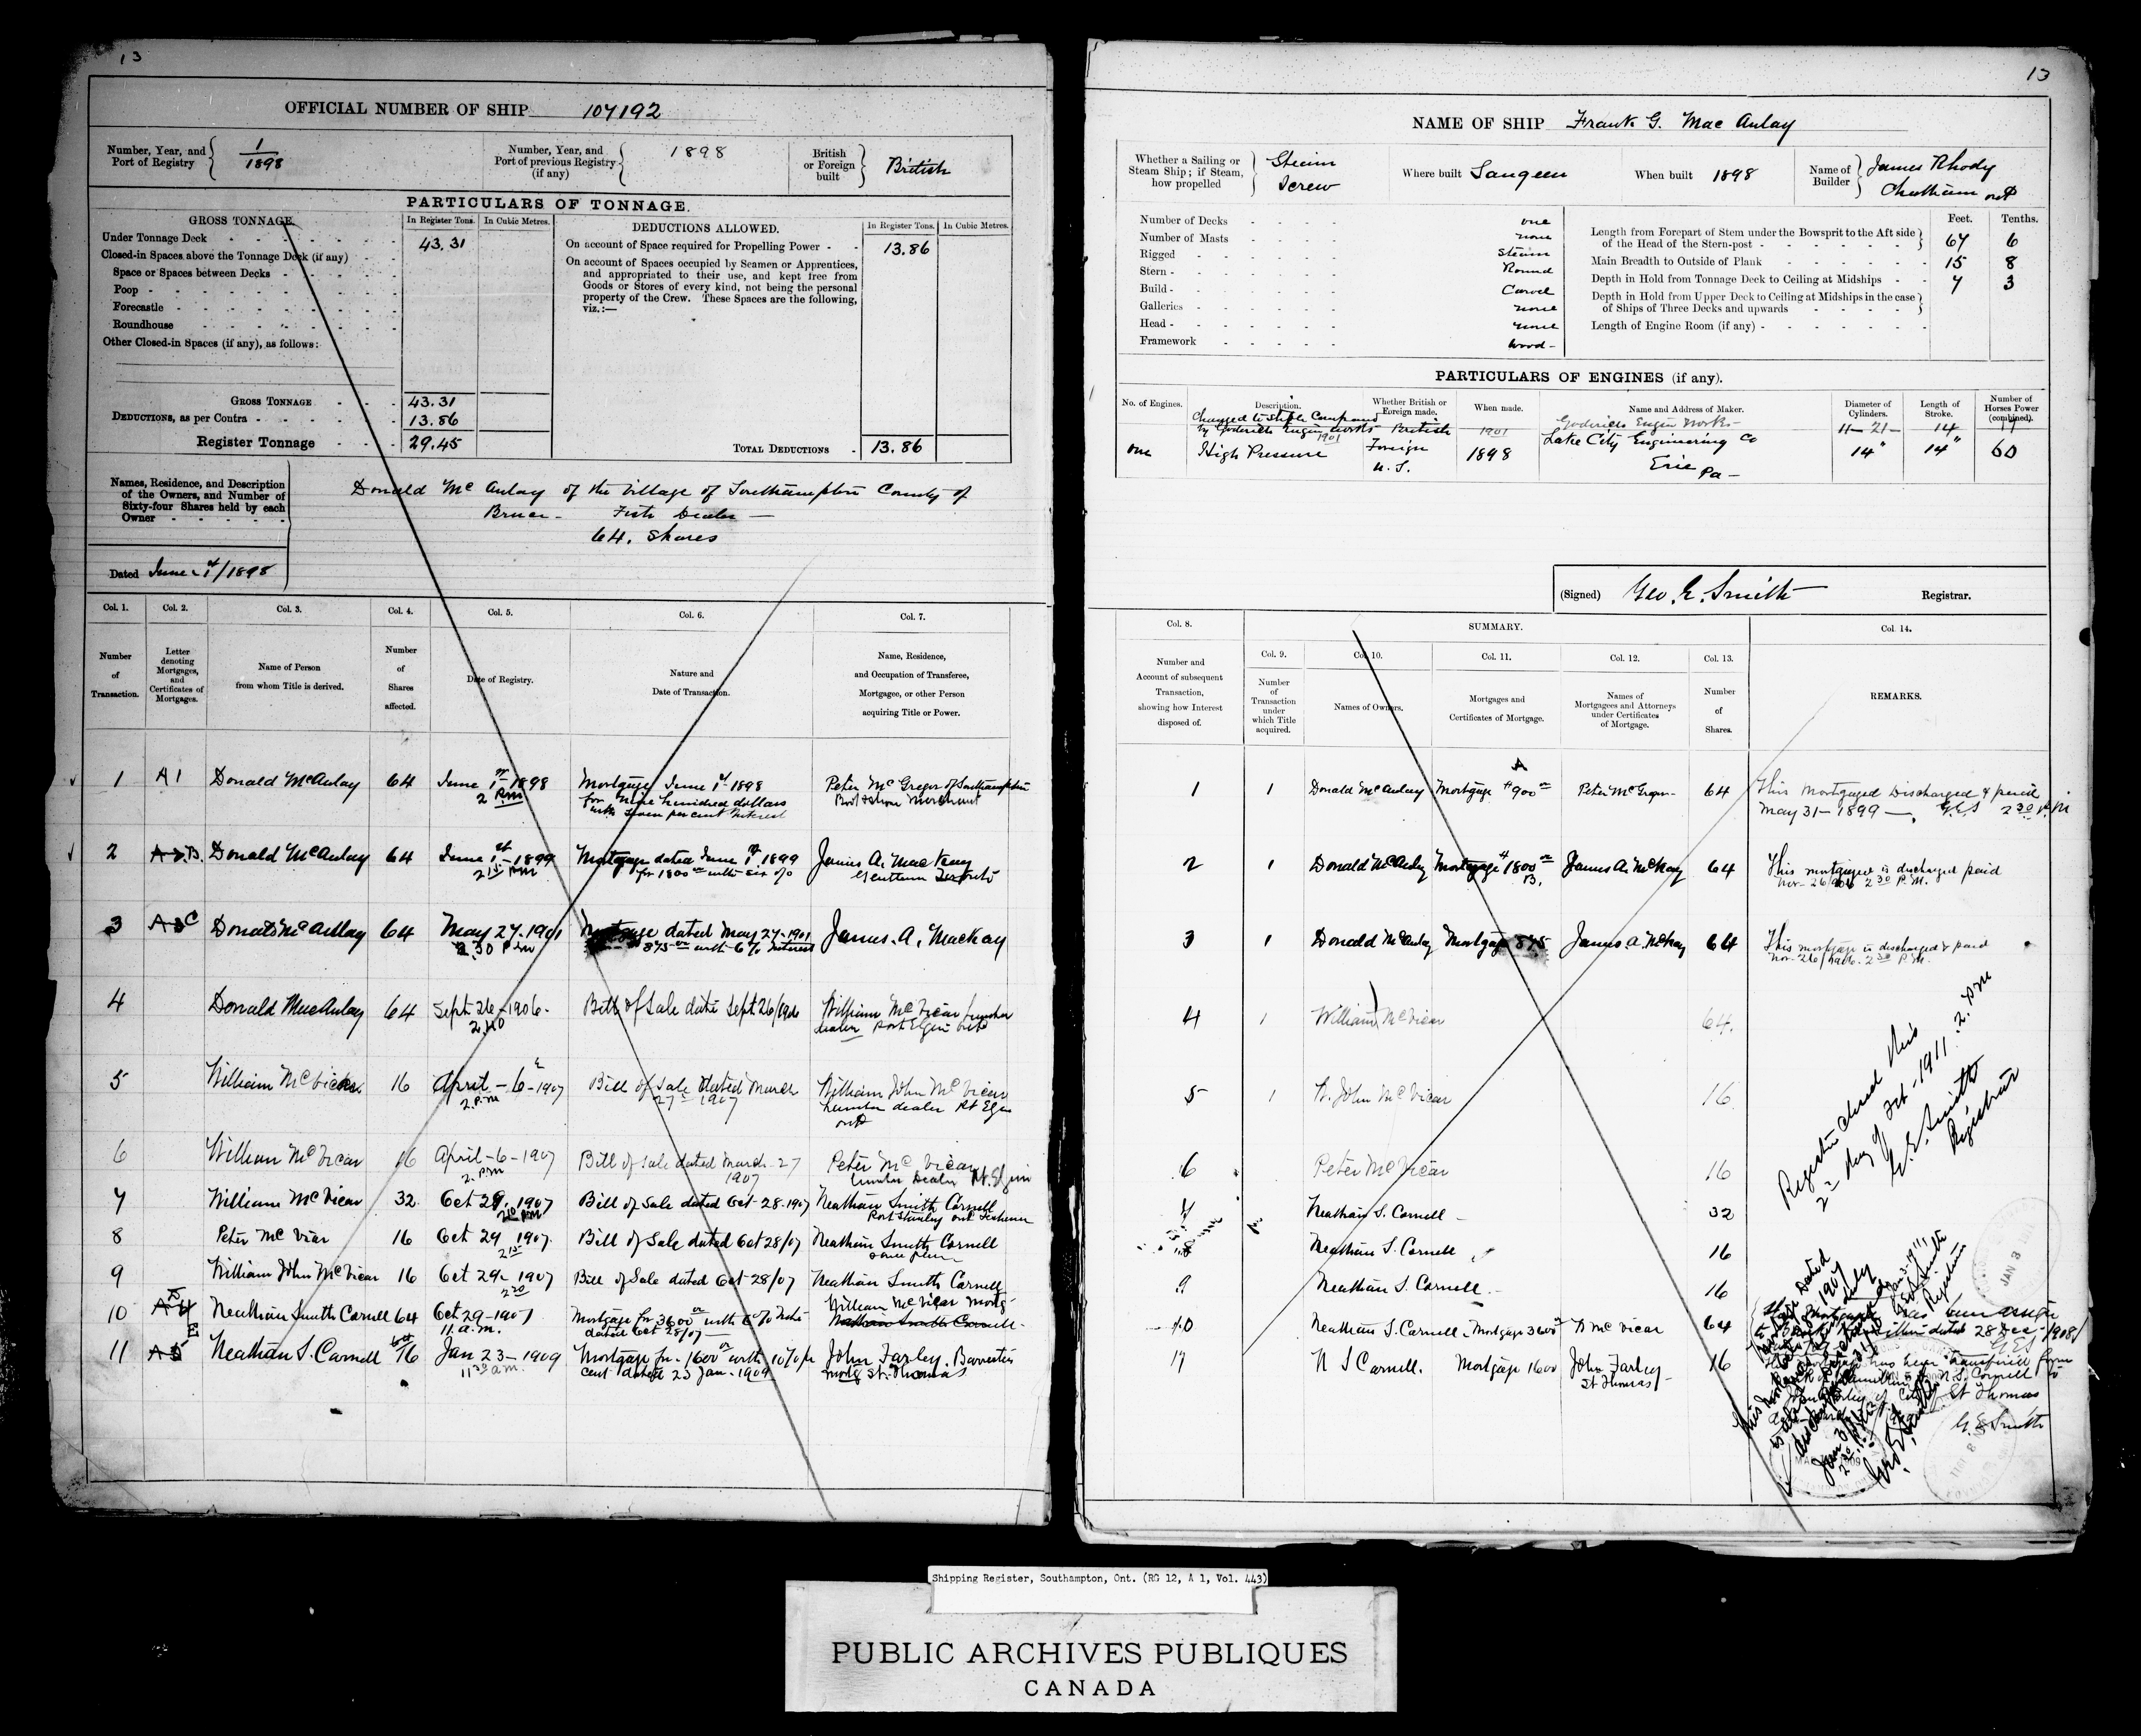 13
OFFICIAL NUMBER OF SHIP 107192
Number, Year, and Port of Registry 1/1898
Number, Year, and Port of previous Registry (if any) 1898
British or Foreign built British
PARTICULARS OF TONNAGE.
GROSS TONNAGE. In Register Tons. In Cubic Metres.
DEDUCTIONS ALLOWED. In Register Tons. In Cubic Metres.
Under Tonnage Deck 43.31
Closed-in Spaces above the Tonnage Deck (if any)
Space or Spaces between Decks
Poop
Forecastle
Roundhouse
Other Closed-in Spaces (if any), as follows:
On account of Space required for Propelling Power 13.86
On account of Spaces occupied by Seamen or Apprentices,
and appropriated to their use, and kept free from
Goods or Stores of every kind, not being the personal
property of the Crew. These Spaces are the following,
viz.:—
GROSS TONNAGE 43.31
DEDUCTIONS, as per Contra 13.86
Register Tonnage 29.45
TOTAL DEDUCTIONS 13.86
Names, Residence, and Description
of the Owners, and Number of
Sixty-four Shares held by each
Owner
Donald McAulay of the Village of Southampton County of
Bruce - Fish Dealer —
64. Shares
Dated June 1st/1898
Col. 1. Col. 2. Col. 3. Col. 4. Col. 5. Col. 6. Col. 7.
Number of Transaction.
Letter denoting Mortgages, and Certificates of Mortgages.
Name of Person from whom Title is derived.
Number of Shares affected.
Date of Registry.
Nature and Date of Transaction.
Name, Residence, and Occupation of Transferee, Mortgagee, or other Person acquiring Title or Power.
1 A1 Donald McAulay 64 June 1st 1898 Mortgage June 1st 1898 Peter McGregor of Southampton
2 P.M for Nine hundred dollars Boot & Shoe Merchant
with Seven per cent Interest
2 B. Donald McAulay 64 June 1st-1899 Mortgage dated June 1st 1899 James A. MacKay
2 15 PM for 1800 with six % Gentleman Toronto
3 C Donald McAulay 64 May 27-1901 Mortgage dated May 27-1901 James. A. MacKay
2.30 P.M 875 with 6% Interest
4 Donald MacAulay 64 Sept 26-1906- Bill of Sale date Sept 26/1906 William McVicar lumber
dealer Port Elgin Ont
5 William McVicar 16 April-6-1907 Bill of Sale dated March William John McVicar
2.P.M 27 1907 Lumber dealer Pt Elgin
Ont
6 William McVicar 16 April-6-1907 Bill of Sale dated March-27 Peter McVicar
2.PM 1907 Lumber Dealer Pt. Elgin
7 William McVicar 32 Oct 29. 1907 Bill of Sale dated Oct-28.1907 Neathan Smith Cornell
Port Stanley Ont
8 Peter McVicar 16 Oct 29 1907 Bill of Sale dated Oct 28/07 Neathan Smith Cornell
2 15 same place
9 William John McVicar 16 Oct 29-1907 Bill of Sale dated Oct-28/07 Neathan Smith Cornell
2 20
10 Neathan Smith Cornell 64 Oct 29-1907 Mortgage for 3600 with 6% William McVicar Mortg
11 a.m. dated Oct 28/07 Nathan Smith Cornell
11 E Neathan S. Cornell 16 Jan 23-1909 Mortgage for 1600 with 10% per John Farley. Barrister
11 30 am. cent dated 23 Jan-1909 St. Thomas
13
NAME OF SHIP Frank G. MacAulay
Whether a Sailing or Steam Ship; if Steam, how propelled Steam Screw
Where built Saugeen
When built 1898
Name of Builder James Rhody Chatham Ont
Number of Decks one
Number of Masts none
Rigged Steam
Stern Round
Build Carvel
Galleries none
Head none
Framework Wood-
Feet. Tenths.
Length from Forepart of Stem under the Bowsprit to the Aft side of the Head of the Stern-post 67 6
Main Breadth to Outside of Plank 15 8
Depth in Hold from Tonnage Deck to Ceiling at Midships 7 3
Depth in Hold from Upper Deck to Ceiling at Midships in the case of Ships of Three Decks and upwards
Length of Engine Room (if any)
PARTICULARS OF ENGINES (if any).
No. of Engines. Description. Whether British or Foreign made. When made. Name and Address of Maker. Diameter of Cylinders. Length of Stroke. Number of Horses Power (combined).
Changed to Steple Compound Goderich Engin Works
by Goderich Engin Works 1901 British 1901 11-21- 14 11
one High Pressure Foreign 1898 Lake City Engineering Co 14" 14" 60
U.S. Erie Pa-
(Signed) Geo. E. Smith Registrar.
Col. 8. SUMMARY. Col. 14.
Col. 9. Col. 10. Col. 11. Col. 12. Col. 13.
Number and Account of subsequent Transaction, showing how Interest disposed of.
Number of Transaction under which Title acquired.
Names of Owners.
Mortgages and Certificates of Mortgage.
Names of Mortgagees and Attorneys under Certificates of Mortgage.
Number of Shares.
REMARKS.
A
1 1 Donald McAulay Mortgage $900 Peter McGregor 64 This Mortgaged Discharged & paid
May 31-1899 — G.E.S 2 30 P.M
2 1 Donald McAulay Mortgage $1800 James A. McKay 64 This mortgage is discharged paid
B. Nov-26/1906 2 30 P.M.
3 1 Donald McAulay Mortgage 875 James. A. McKay 64 This mortgage is discharged & paid
Nov-26/1906. 2 30 P.M.
4 1 William McVicar 64.
5 1 W. John McVicar 16
6 Peter McVicar 16
7 Neathan S. Cornell 32
8 Neathan S. Cornell 16
9 Neathan S. Cornell 16
10 Neathan S. Cornell Mortgage 3600 W McVicar 64
11 N S Cornell. Mortgage 1600 John Farley 16
St Thomas
Register closed this
2nd day of Oct-1911. 2. PM
G.E. Smith
Registrar
dated 28 Dec/1908
G.E.S
St Thomas
G.E Smith
Shipping Register, Southampton, Ont. (RG 12, A 1, Vol. 443)
PUBLIC ARCHIVES PUBLIQUES
CANADA